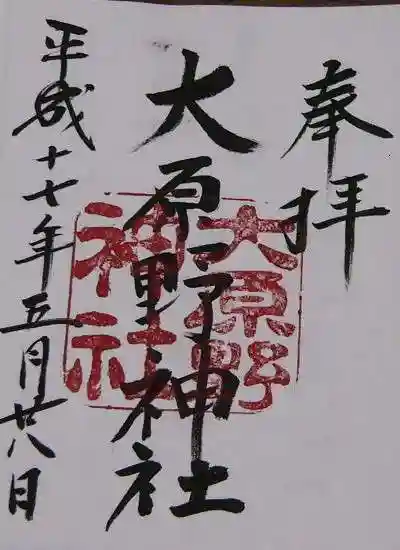 奉拝
大原野神社
大原野
神社
平成十七年五月廿八日